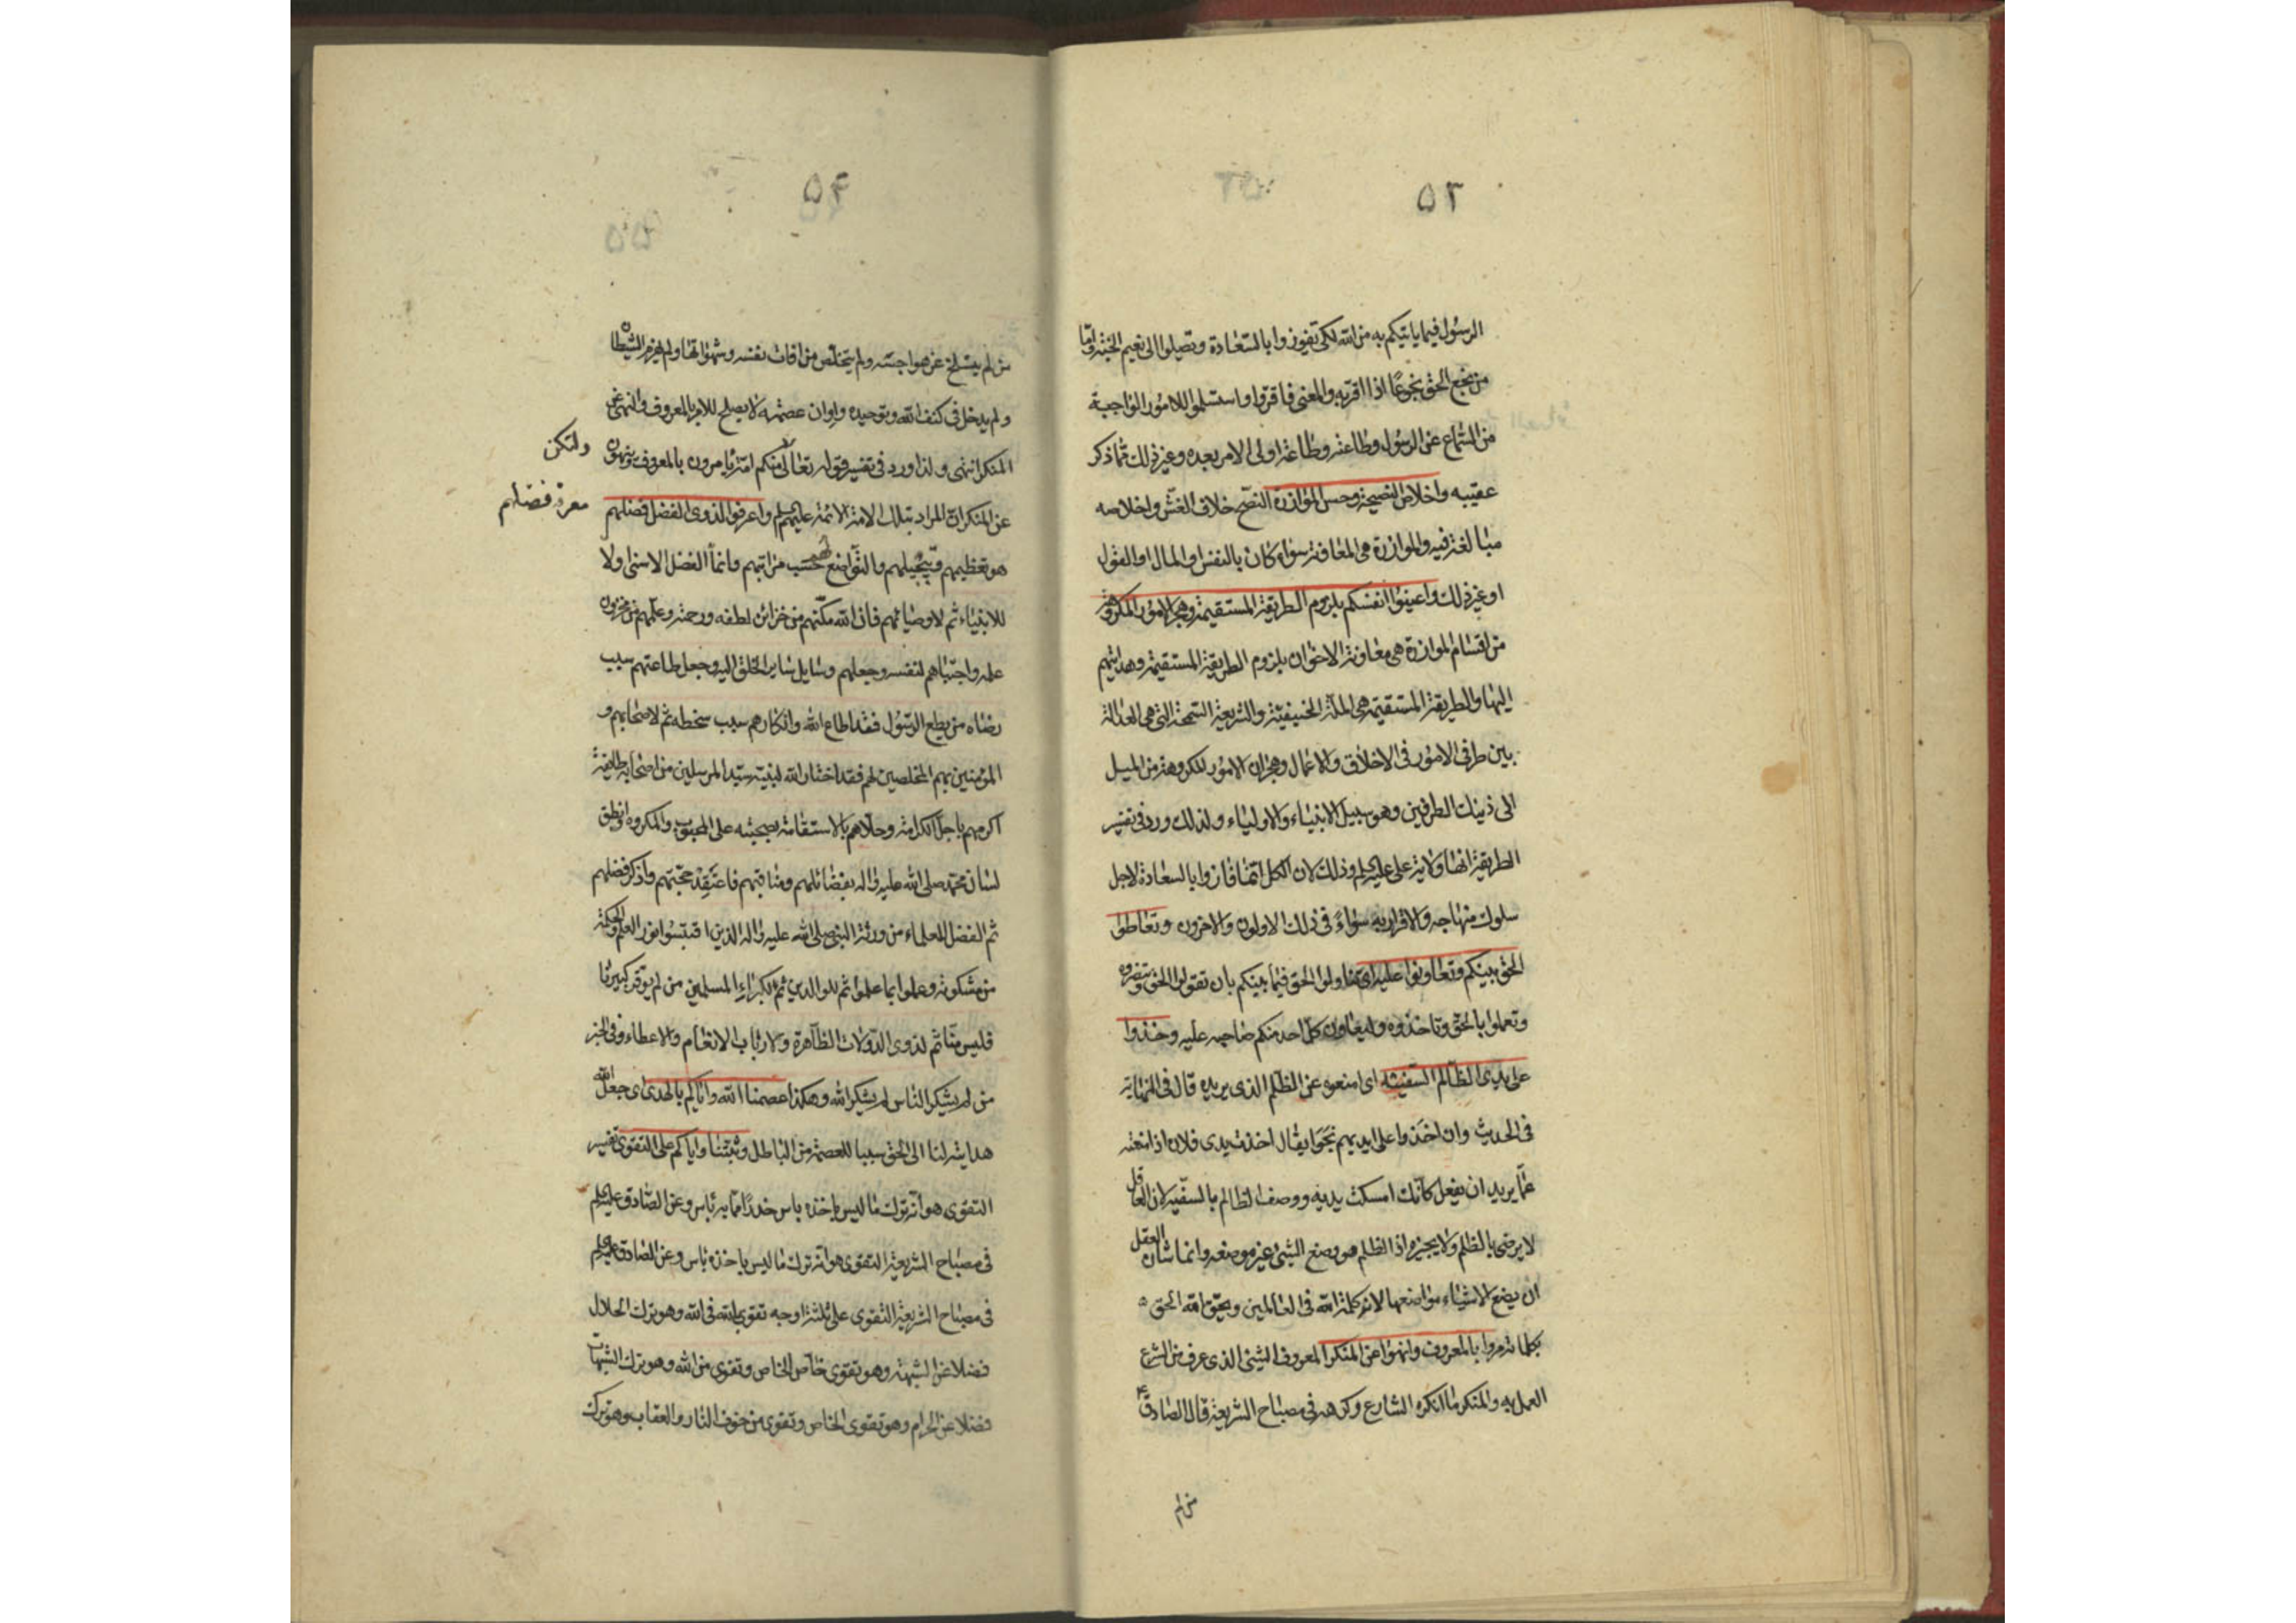 ۵۳
الرسول فيما ياتيكم به من الله لكي تفوزوا بالسعادة وتصلوا الى نعيم الجنة واما
من نجع الحق نجوعًا اذا اقر به والمعنى فاقروا واستسلموا للامور الواجبة
من السماع عن الرسول وطاعته وطاعة اولى الامر بعده وغير ذلك مما ذكر
عقيبه واخلاص النصيحة وحسن الموازرة النصح خلاف الغش واخلاصه
مبالغة فيه والموازرة هى المعاونة سواء كان بالنفس او المال او القول
او غير ذلك واعينوا انفسكم بلزوم الطريقة المستقيمة وهجر الامور المكروهة
من اقسام الموازرة هى معاونة الاخوان بلزوم الطريقة المستقيمة وهدايتهم
اليها والطريقة المستقيمة هى الملة الحنيفية والشريعة السمحة التى هى العدالة
بين طرفى الامور فى الاخلاق والاعمال وهجران الامور المكروهة من الميل
الى ذينك الطرفين وهو سبيل الانبياء والاولياء ولذلك ورد فى تفسير
الطريقة انها ولاية على عليه السلم وذلك لان الكل انما فازوا بالسعادة لاجل
سلوك منهاجه والاقرار به سواءً فى ذلك الاولون والاخرون وتعاطوا
الحق بينكم وتعاونوا عليه اى تناولوا الحق فيما بينكم بان تقولوا الحق
وتعملوا بالحق وتاخذوه وليعاون كل احد منكم صاحبه عليه وخذوا
على يدى الظالم السفيه اى امنعوه عن الظلم الذى يريده قال فى النهاية
فى الحديث وان اخذوا على ايديهم نجوا يقال اخذت يدى فلان اذا منعته
عما يريد ان يفعل كانك امسكت يديه ووصف الظالم بالسفيه لان العاقل
لا يرضى بالظلم ولا يجيزه اذ الظلم هو وضع الشئ غير موضعه وانما شان العقل
ان يضع الاشياء مواضعها لانه كلمة الله فى العالمين ويحق الله الحق
بكلماته مروا بالمعروف وانهوا عن المنكر المعروف الشئ الذى عرف من الشرع
العمل به والمنكر ما انكره الشارع وكرهه فى مصباح الشريعة قال الصادق ع
من لم
۵۴
من لم ينسلخ عن هواجسه ولم يتخلص من افات نفسه وشهواتها ولم يهزم الشيطان
ولم يدخل فى كنف الله وتوحيده وامان عصمته لا يصلح للامر بالمعروف والنهى عن
المنكر انتهى ولذا ورد فى تفسير قوله تعالى منكم امة يامرون بالمعروف وينهون
ولتكن
عن المنكر ان المراد بتلك الامة الائمة عليهم السلم واعرفوا لذوى الفضل فضلهم
معرفة فضلهم
هو تعظيمهم وتبجيلهم والتواضع لهم حسب مراتبهم وانما الفضل الاسنى ولا
للانبياء ثم لاوصيائهم فان الله مكنهم من خزائن لطفه ورحمته وعلمهم من مخزون
علمه واجتباهم لنفسه وجعلهم وسايل ساير الخلق اليه وجعل طاعتهم سبب
رضاه من يطع الرسول فقد اطاع الله وانكارهم سبب سخطه ثم لاصحابهم و
المؤمنين بهم المخلصين لهم فقد اختار الله لنبيه سيد المرسلين من اصحابه طائفة
اكرمهم باجل الكرامة وحلاهم بالاستقامة بصحبته على المحبوب والمكروه وانطق
لسان محمد صلى الله عليه واله بفضائلهم ومناقبهم فاعتقد محبتهم واذكر فضلهم
ثم الفضل للعلماء من ورثة النبى صلى الله عليه واله الذين اقتبسوا نور العلم والحكمة
من مشكوته وعملوا بما علموا ثم للوالدين ثم لكبراء المسلمين من لم يوقر كبيرنا
فليس منا ثم لذوى الدولات الظاهرة ولارباب الانعام والاعطاء وفى الخبر
من لم يشكر الناس لم يشكر الله وهكذا عصمنا الله واياكم بالهدى اى جعل الله
هدايته لنا الى الحق سببا للعصمة من الباطل وثبتنا واياكم على التقوى تفسير
التقوى هو انه ترك ما ليس باخذه باس حذرًا مما به باس وعن الصادق عليه السلم
فى مصباح الشريعة التقوى هو انه ترك ما ليس باخذه باس وعن الصادق عليه السلم
فى مصباح الشريعة التقوى على ثلثة اوجه تقوى بالله فى الله وهو ترك الحلال
فضلا عن الشبهة وهو تقوى خاص الخاص وتقوى من الله وهو ترك الشبهات
فضلا عن الحرام وهو تقوى الخاص وتقوى من خوف النار والعقاب وهو ترك